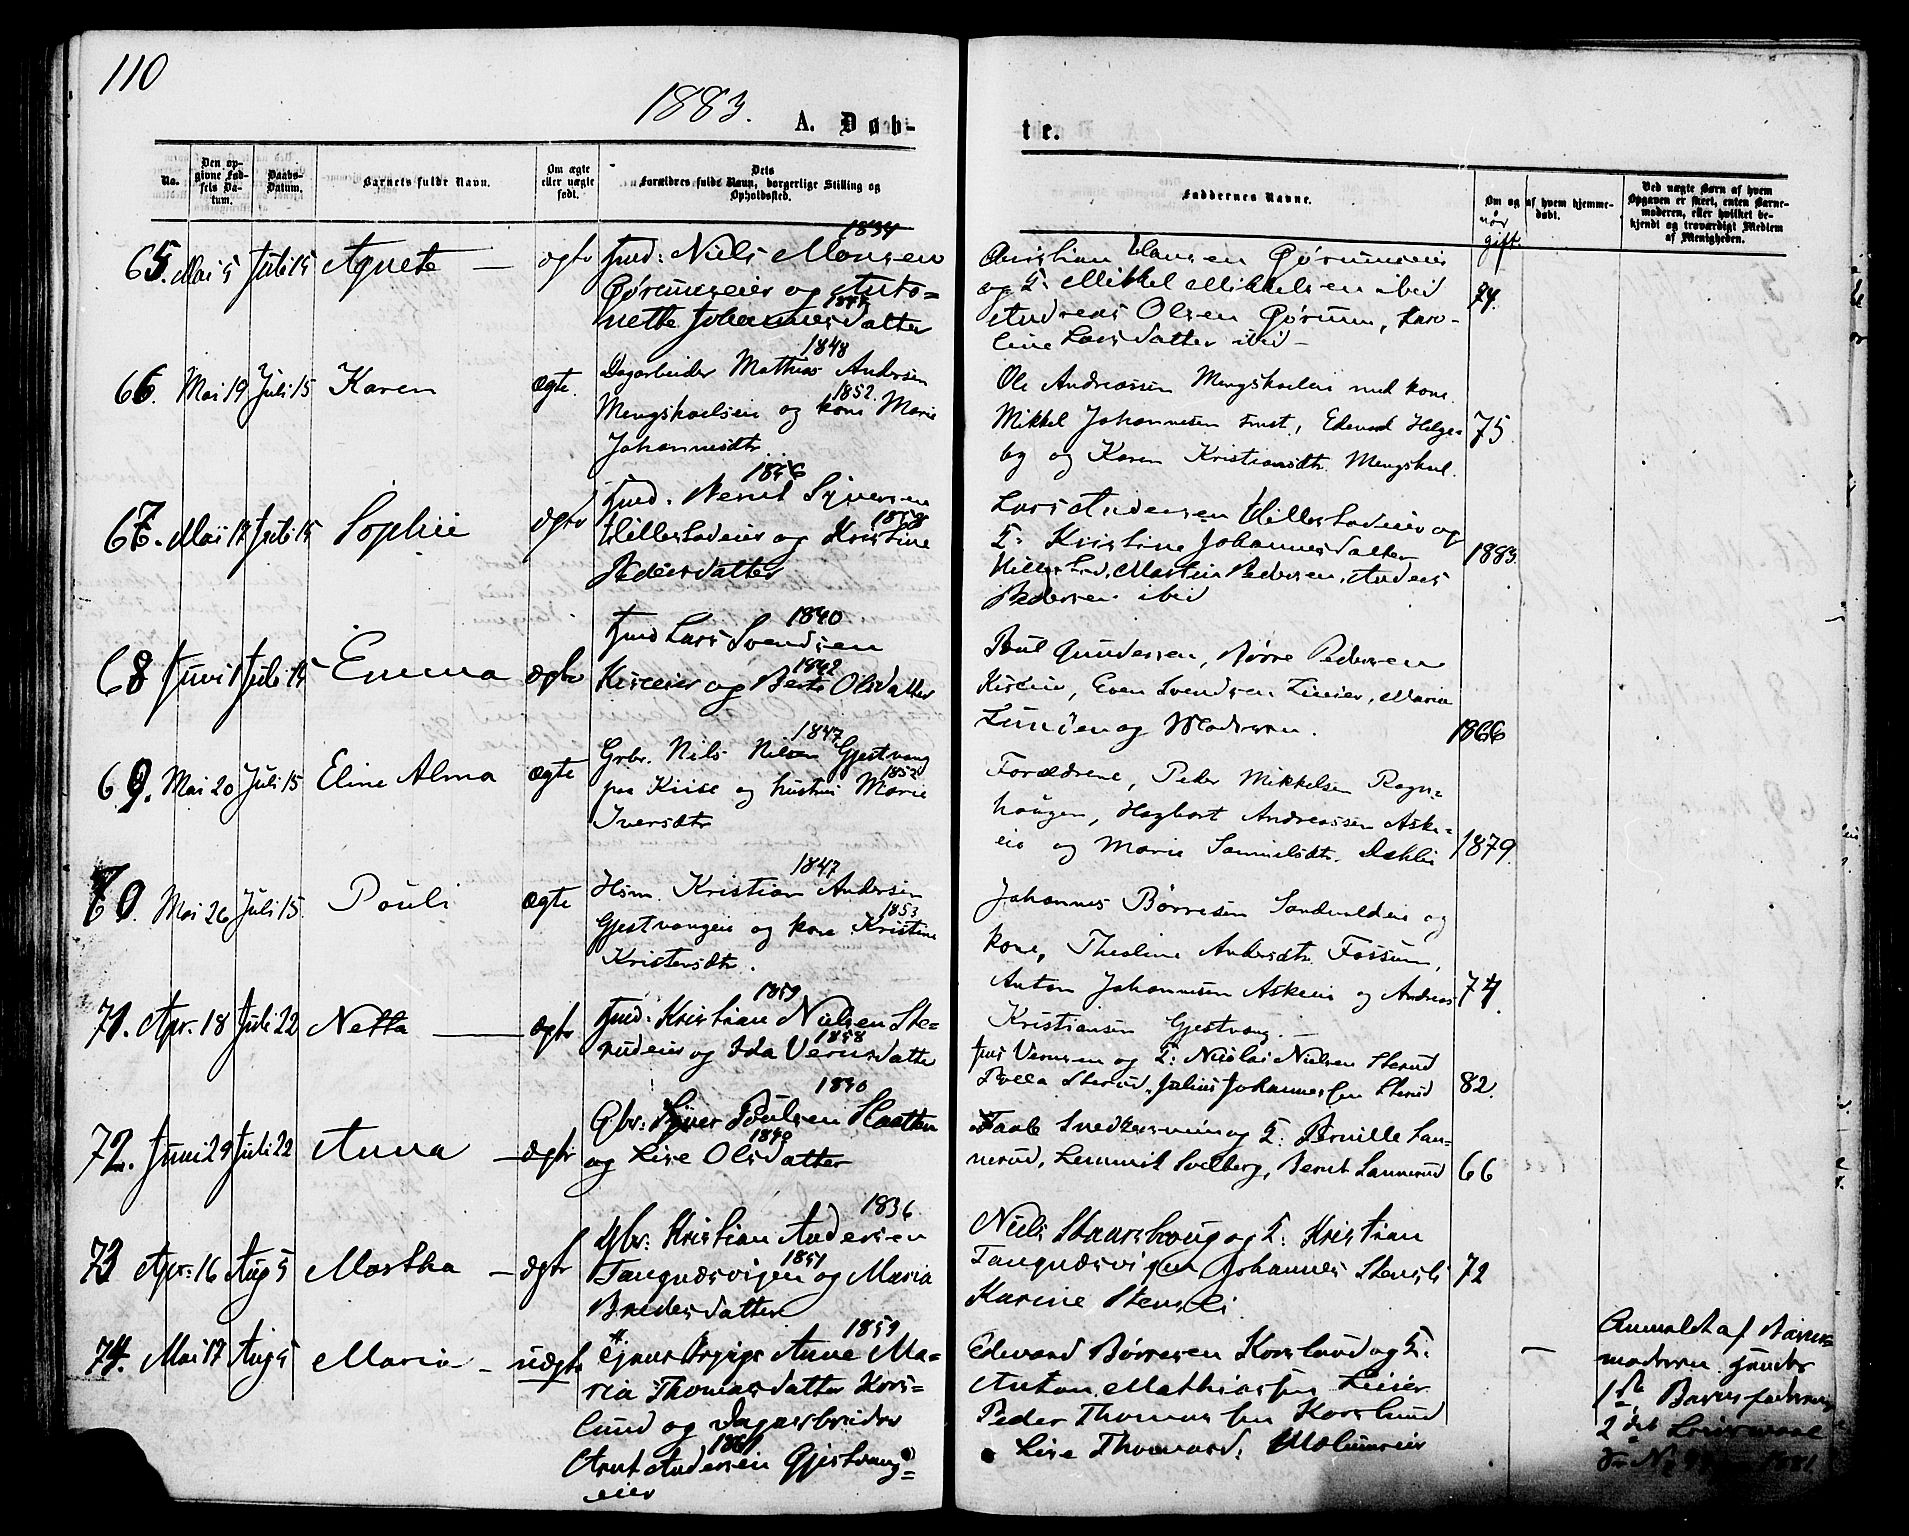 110
1883.
A. Døb-
te.
No.
Den op-
givne Fød-
sels Da-
tum.
Daabs-
Datum.
Barnets fulde Navn.
Om ægte
eller uægte
født.
Dets
Forældres fulde Navn, borgerlige Stilling og
Opholdssted.
Faddernes Navne.
Om og af hvem hjemme-
døbt.
når
gift.
Ved uægte Børn af hvem
Opgaven er skeet, enten Barne-
moderen, eller hvilket be-
kjendt og troværdigt Medlem
af Menigheden.
1834
65. Mai 5 Juli 15 Agnete — ægte Inds: Niels Monsen
Gørumseier og Anto=
nette Johannesdatter
Christian Hansen Gørumseier
og F: Mikkel Mikkelsen ibid
Andreas Olsen Gørum, Karo-
line Larsdatter ibid —
74.
1848
66. Mai 19 Juli 15 Karen ægte. Dagarbeider Mathias Andersen
1852.
Mengshoelseie og kone Marie
Johannesdtr.
Ole Andreassen Mengshoeleie med kone.
Mikkel Johannesen, Edvard Helge-
by og Karen Kristiansdtr. Mengshoel.
75
1856
67. Mai 17 Juli 15 Sophie ægte Inds. Bernt Syversen
1858
Hillestadeier og Kristine
Pedersdatter
Lars Andersen Hillestadeier og
F: Kristine Johannesdatter
Hillestad, Martin Pedersen, Anders
Pedersen ibid
1883.
1840
68 Juni 1 Juli 15 Emma ægte Inds Lars Svendsen
1842
Kiseeier og Berte Olsdatter
Poul Gundersen, Børre Pedersen
Kiseeier, Even Svendsen, Maria
og Moderen.
1866
1847
69. Mai 20 Juli 15 Eline Alma ægte Grbr. Nils Nilsen Gjestvang
1852
paa Kiise og hustru Marie
Iversdtr
Forældrene, Peder Mikkelsen Rogn=
haugen, Hagbart Andreassen Aske-
eie og Marie Samuelsdtr. Dæhli
1879.
1847
70. Mai 26 Juli 15. Pouli ægte Hsm. Kristian Andersen
1853
Gjestvangeie og kone Kristine
Kristensdtr.
Johannes Børresen Sandvoldeie og
kone, Theoline Andersdtr. Fossum,
Anton Johannesen Askeeie og Andreas
Kristiansen Gjestvang. —
74.
1859
71. Apr. 18 Juli 22 Netta — ægte Inds: Kristian Nielsen Ste-
1858
rudeier og Ida Verensdatter
Vernsen og F: Nicolai Nielsen Sterud
Sterud, Julius Johannessen Sterud
82.
1840
72. Juni 29 Juli 22 Anna — ægte Gbr: Syver Poulsen Slaatten
1840
og Lise Olsdatter
og F: Pernille San-
nerud, Lemmik Solberg, Bernt Sannerud
66
1836
73 Apr: 16 Aug 5 Martha — ægte Gbr: Kristian Andersen
1851
Tangnæsvigen og Maria
Bredesdatter
Niels Skaarshoug og F: Kristian
Tangnæsvigen Johannes Stensli
Karine Stensli
72
1859
74. Mai 17 Aug 5 Maria — uægte Pige Anne Ma-
ria Thomasdatter Kors-
lund og Dagarbeider
Arnt Andersen Gjestvang=
eier
Edvard Børresen Korslund og F:
Anton Mathiassen
Peder Thomassen Korslund
Lise Thomasd: Mælumseier
—
Anmeldt af Barne-
moderen
1ste Barnefaderens
2det Leiermaal